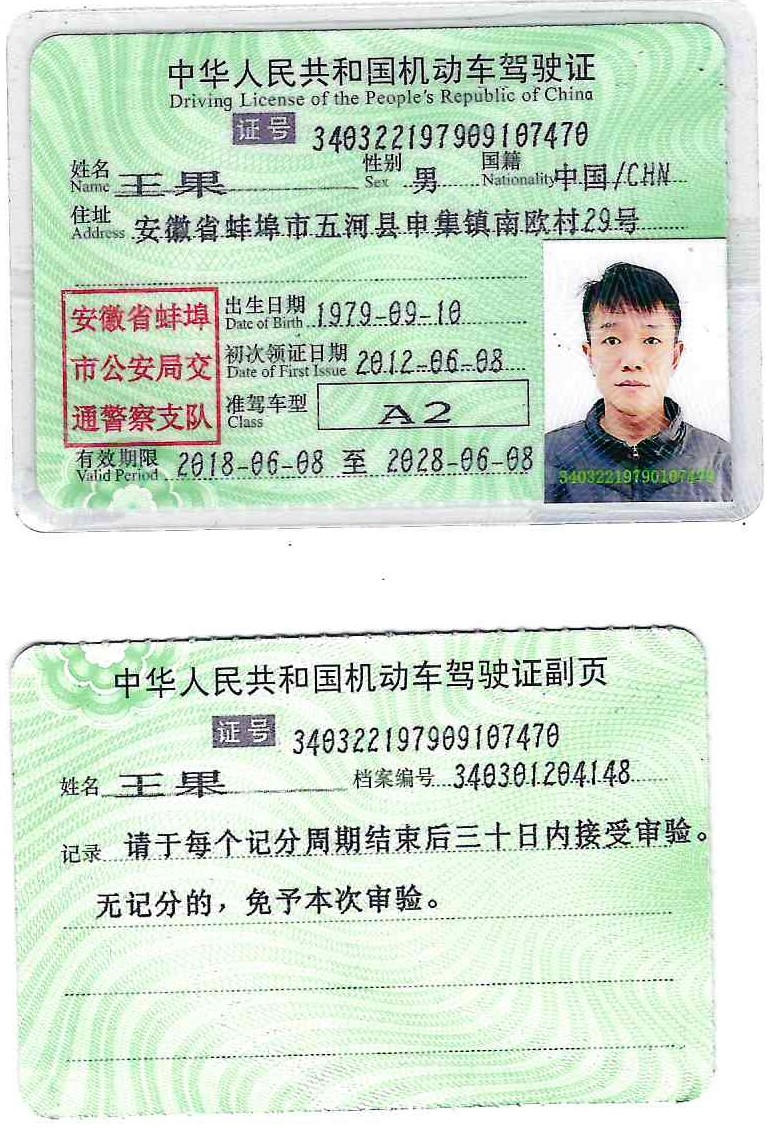 中华人民共和国机动车驾驶证
Driving License of the People's Republic of China
证号 340322197909107470
姓名 Name 王果 性别 Sex 男 国籍 Nationality 中国/CHN
住址 Address 安徽省蚌埠市五河县申集镇南欧村29号
安徽省蚌埠
市公安局交
通警察支队
出生日期 Date of Birth 1979-09-10
初次领证日期 Date of First Issue 2012-06-08
准驾车型 Class A2
有效期限 Valid Period 2018-06-08 至 2028-06-08
中华人民共和国机动车驾驶证副页
证号 340322197909107470
姓名 王果 档案编号 340301204148
记录 请于每个记分周期结束后三十日内接受审验。
无记分的，免予本次审验。